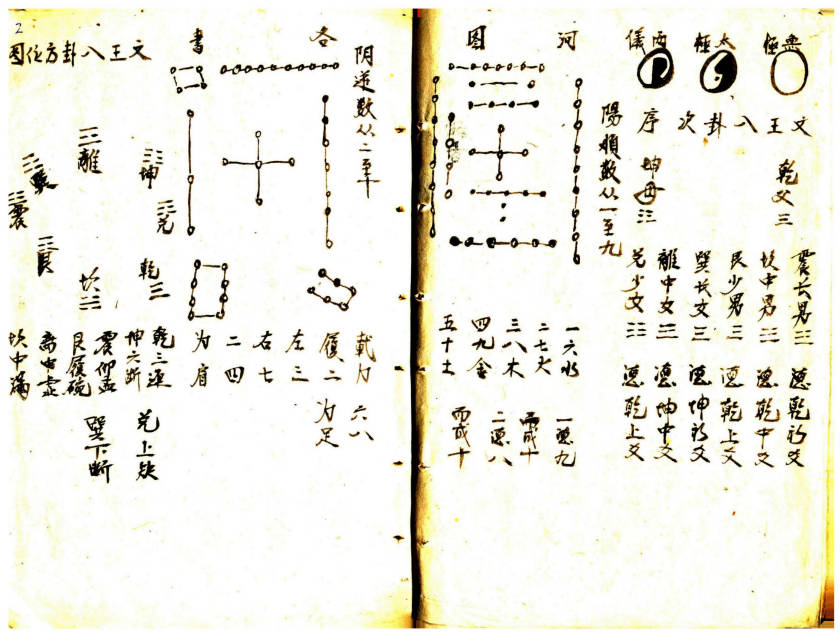 無極
太極
両儀
文王八卦次序
乾父☰
坤母☷
震长男☳ 德乾初爻
坎中男☵ 德乾中爻
艮少男☶ 德乾上爻
巽长女☴ 德坤初爻
離中女☲ 德坤中爻
兑少女☱ 德乾上爻
河图
陽順数从一至九
一六水 一德九
二七火 而成十
三八木 二德八
四九金 而成十
五十土
各書
阴逆数从二至十
載九 六八
履二 为足
左三
右七
二四
为肩
文王八卦方位图
離
坤
兑
乾☰
坎☵
艮
震
巽
乾三連 兑上缺
坤六断
震仰盂 巽下断
艮履碗
離中虚
坎中满
2